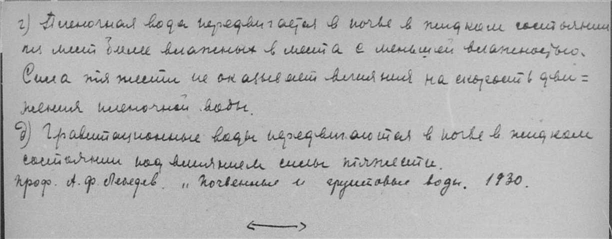 г) Пленочная вода передвигается в почве в жидком состоянии
из мест более влажных в места с меньшей влажностью.
Сила тяжести не оказывает влияния на скорость дви=
жения пленочной воды.
д) Гравитационные воды передвигаются в почве в жидком
состоянии под влиянием силы тяжести.
проф. А. Ф. Лебедев. „Почвенные и грунтовые воды. 1930.